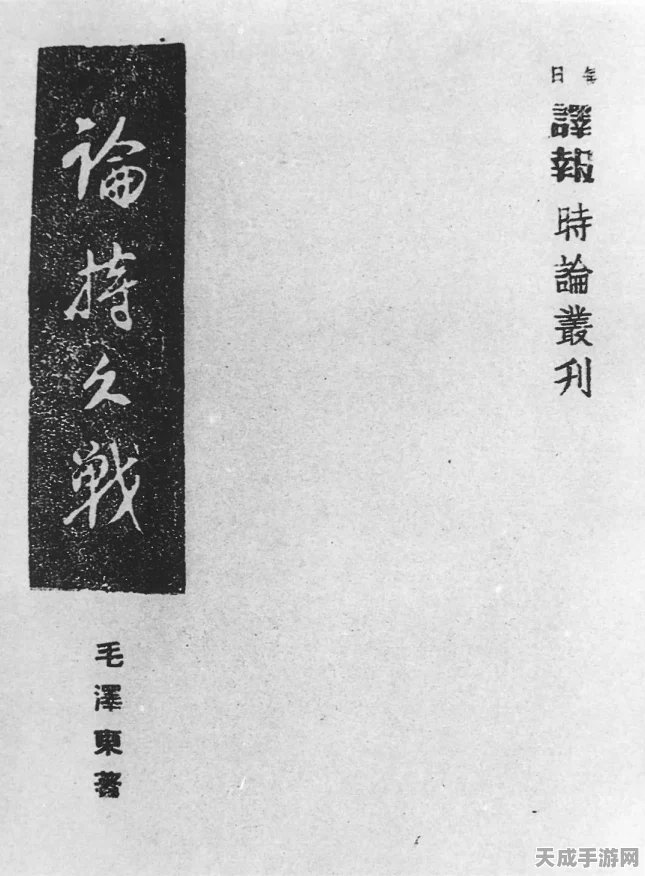 每日
譯報
時論叢刊
論持久戰
毛澤東著
天成手游网